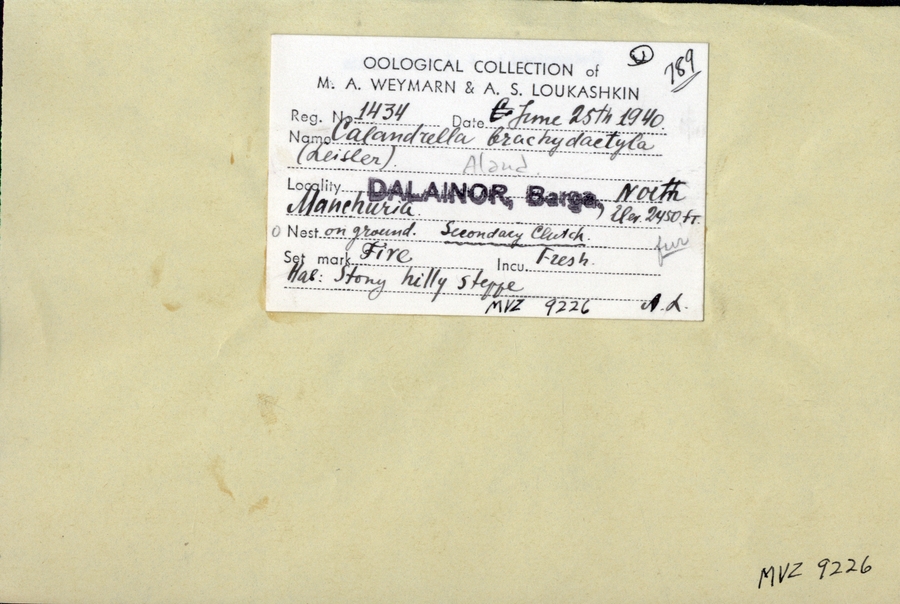 789
OOLOGICAL COLLECTION of
M. A. WEYMARN & A. S. LOUKASHKIN
Reg. No 1434 Date June 25th 1940.
Name Calandrella brachydactyla
(Leisler). Alaud.
Locality DALAINOR, Barga, North
Manchuria. Elev. 2450 ft.
O Nest. on ground. Secondary Clutch.
Set mark Five Incu. Fresh.
Hab: Stony hilly steppe
MVZ 9226 A. L.
MVZ 9226